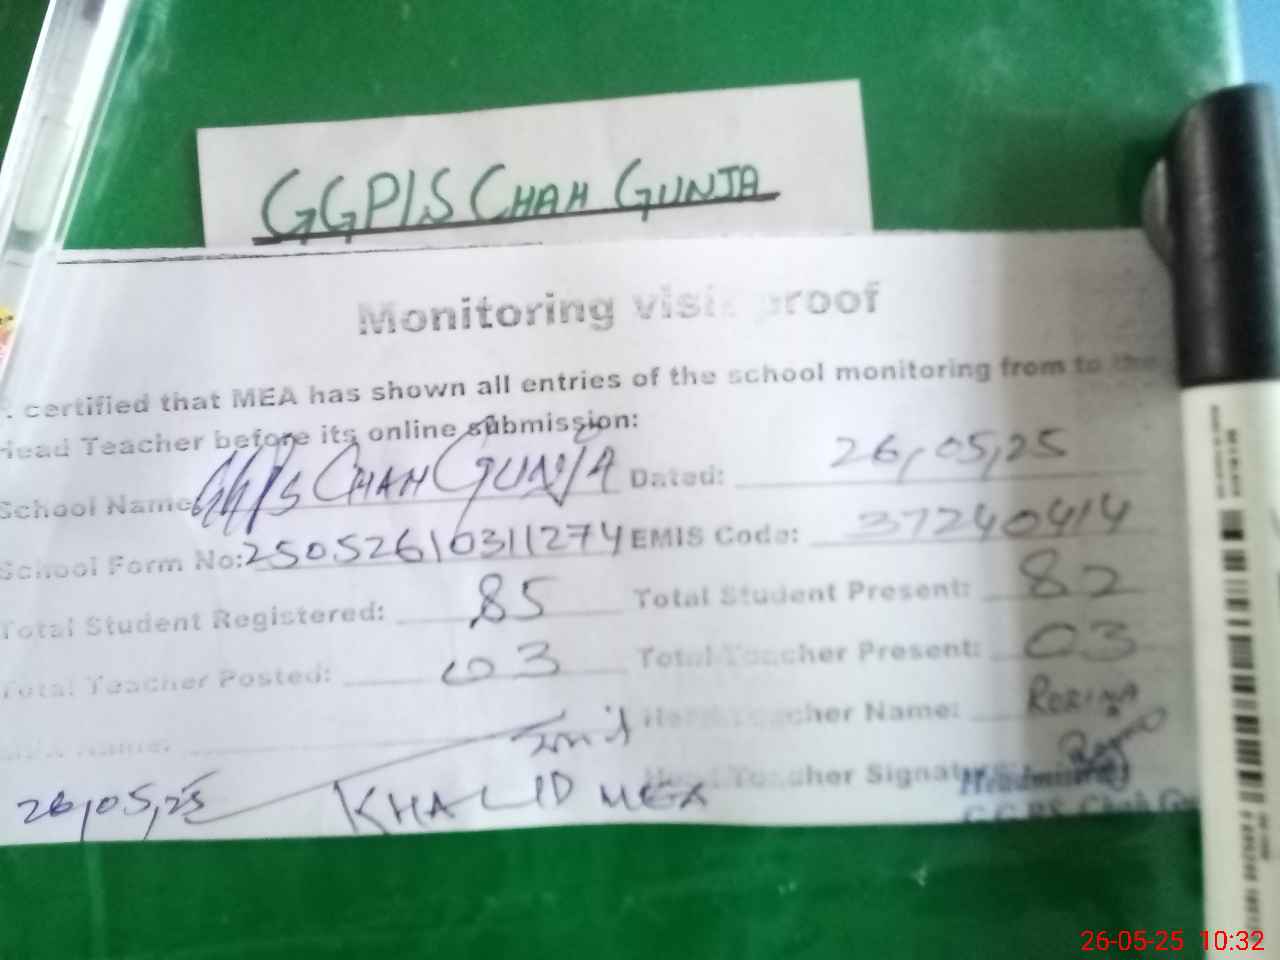 GGP/S CHAH GUNJA
Monitoring visit proof
. certified that MEA has shown all entries of the school monitoring from to the
Head Teacher before its online submission:
School Name GGP/S CHAH GUNJA Dated: 26,05,25
School Form No: 25052610311274 EMIS Code: 37240414
Total Student Registered: 85 Total Student Present: 82
Total Teacher Posted: 03 Total Teacher Present: 03
MEA Name: Head Teacher Name: ROBINA
Head Teacher Signature
26,05,25 KHALID MEA Headmistress
G.G.P.S. Chah
26-05-25 10:32